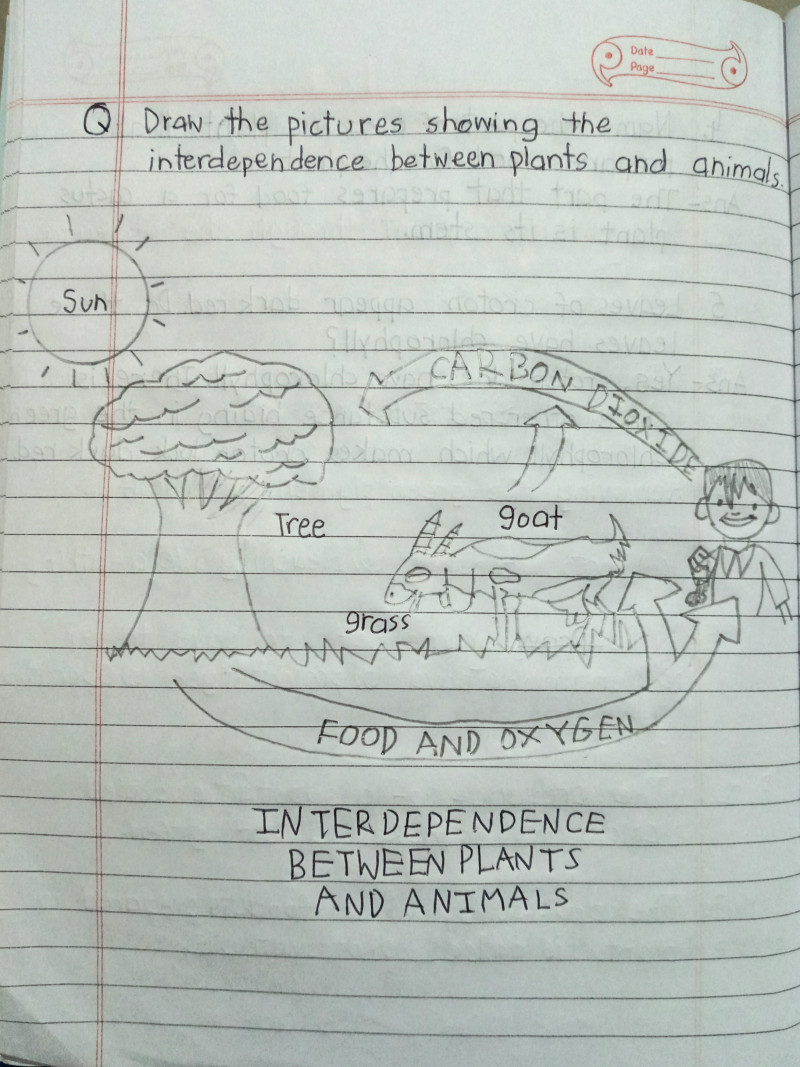 Date
Page
Q Draw the pictures showing the
interdependence between plants and animals.
Sun
CARBON DIOXIDE
Tree
goat
grass
FOOD AND OXYGEN
INTERDEPENDENCE
BETWEEN PLANTS
AND ANIMALS